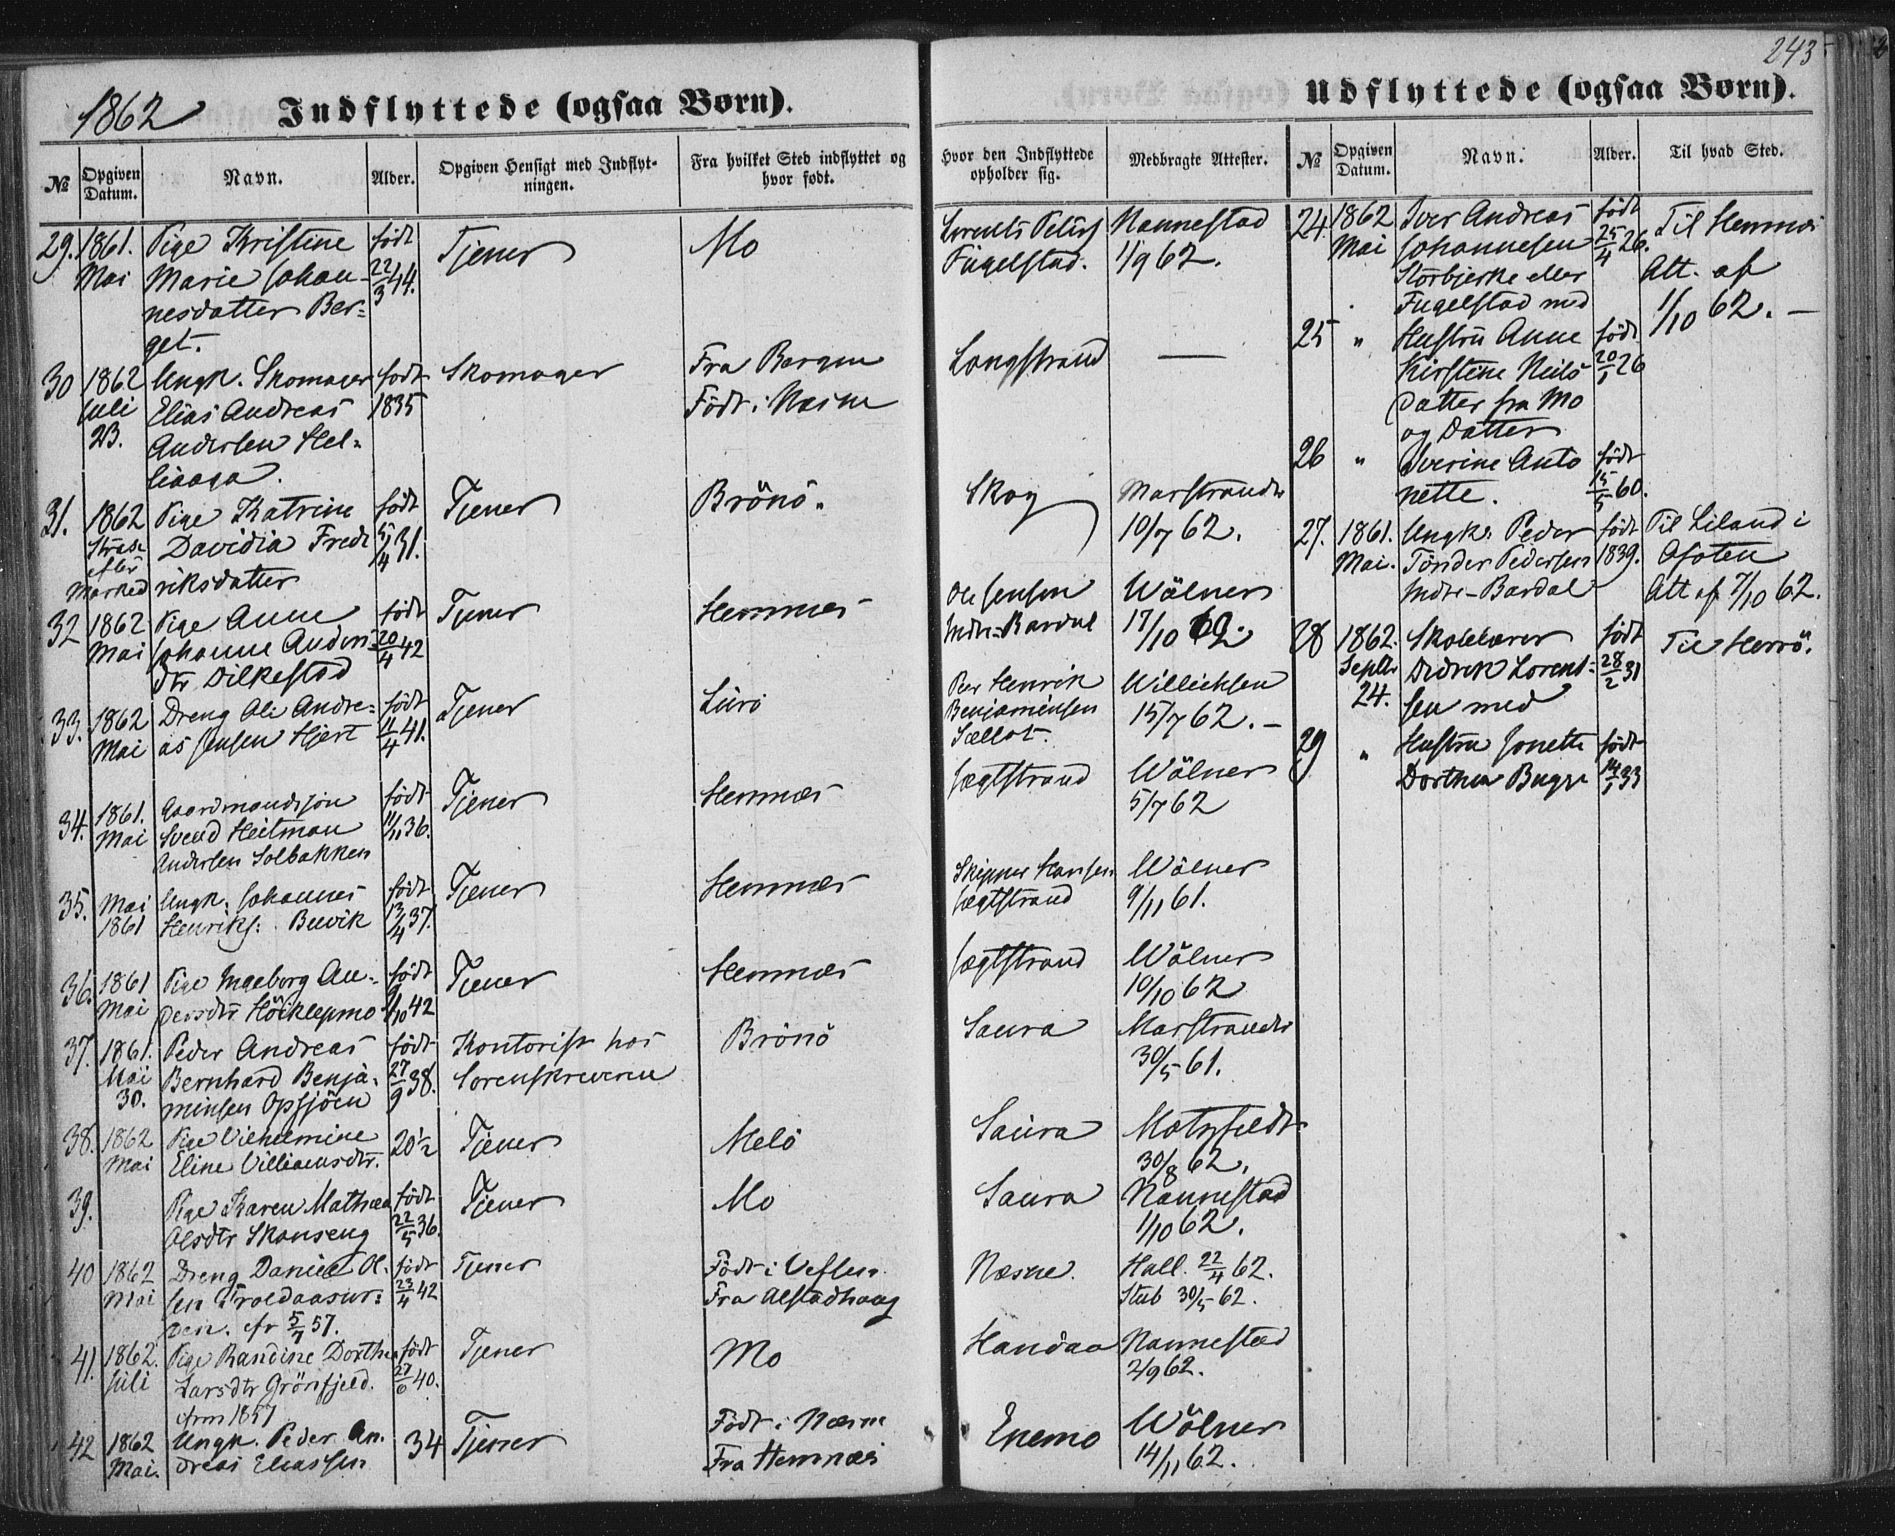 243
1862 Indflyttede (ogsaa Børn).
Udflyttede (ogsaa Børn).
№ Opgiven Datum. Navn. Alder. Opgiven Hensigt med Indflyt-ningen. Fra hvilket Sted indflyttet og hvor født. Hvor den Indflyttede opholder sig. Medbragte Attester.
29. 1861. Pige Kristine født Tjener Mo Lorents Peters Nannestad
Mai Marie Johan- 22/3 44. Fugelstad. 1/9 62.
nesdatter Ber-
get.
30 1862 Ungk. Skomager født Skomager Fra Bergen Langstrand —
Juli Elias Andreas 1835 Født i Næsne
23. Andersen Hel-
liaaga.
31. 1862 Pige Katrine født Tjener Brönö. Skog Marstrander
Strax Davidia Frede 5/4 31. 10/7 62.
efter
Marked riksdatter
32 1862 Pige Anne født Tjener Hemnæs Ole Jensen Wölner
Mai Johanne Anders 20/4 42 Indr-Bardal 17/10 62.
dtr Dilkestad
33. 1862 Dreng Ole Andre- født Tjener Lurö Peer Henrik Willichsen
Mai as Jensen Hjert 11/4 41. Benjaminsen 15/7 62. —
Sællot.
34. 1861. Gaardmandssön født Tjener Hemnæs Jægtstrand Wölner
Mai Svend Heitman 11/11 36. 5/7 62
Andersen Solbakken
35. Mai Ungk. Johannes født Tjener Hemnæs Skipper Hansen Wölner
1861 Henriks: Buvik 13/4 37. Jægtstrand 9/11 61.
36. 1861 Pige Ingeborg An- født Tjener Hemnæs Jægtstrand Wölner
Mai dersdtr Höiklepmo 9/10 42 10/10 62
37. 1861. Peder Andreas født Kontorist hos Brönö Saura Marstrander
Mai Bernhard Benja- 27/9 38. Sorenskriveren 30/5 61.
30. minsen Opsjöen
38. 1862 Pige Vilhelmine 20½ Tjener Melö Saura Motzfeldt
Mai Eline Villiamsdtr. 30/8 62.
39. Pige Karen Mathea født Tjener Mo Saura Nannestad
Olsdtr Skonseng 22/5 36. 1/10 62.
40 1862 Dreng Daniel Ol. født Tjener Født i Vefsen Næsne. Hall 22/4 62.
Mai sen Troldaasur: 23/4 42 Fra Alstadhaug Stub 30/5 62.
den. cfr 5/7 57.
41. 1862. Pige Randine Dorthea født Tjener Mo Handaa Nannestad
Juli Larsdtr Grönfjeld. 27/6 40. 2/9 62.
1857
42 1862 Ungk. Peder An. 34 Tjener Født i Næsne Enemo Wölner
Mai. dreas Eliassen Fra Hemnæs 14/11 62.
№ Opgiven Datum. Navn. Alder. Til hvad Sted.
24. 1862 Iver Andreas født Til Hemnæs
Mai Johannesen 25/4 26. Att. af
Storbjerke eller 1/10 62. —
Fugelstad med
25 " Hustru Anne født
Kirstine Neils 20/5 26
Datter fra Mo
og Datter
26 " Iverine Anto født
nette. 15/5 60.
27. 1861. Ungk: Peder født Til Liland i
Mai. Tönder Pedersen 1839. Ofoten
Indr-Bardal Att af 7/10 62.
28 1862. Skolelærer født Til Herrö.
Septbr Didrik Lorent- 28/2 31
24. sen med
29 " Hustru Jonette født
Dorthea Bugge 14/5 33